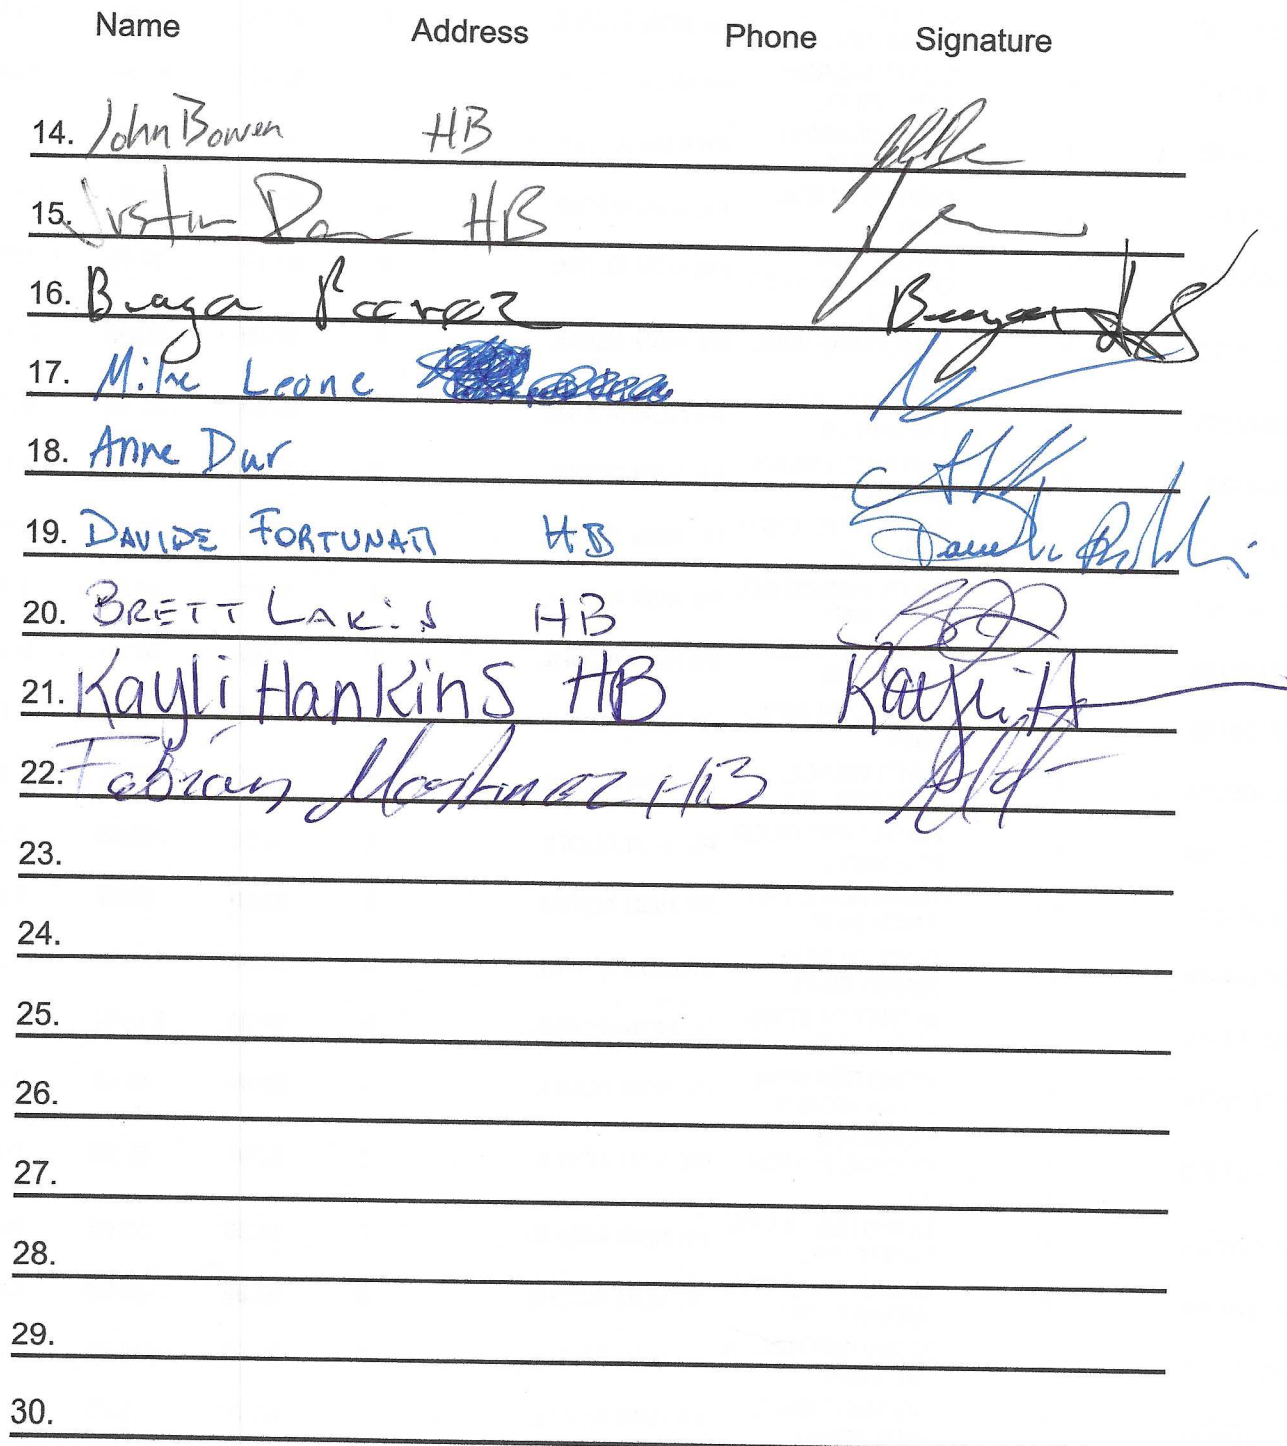 Name Address Phone Signature
14. John Bowen HB
15. Justin HB
16.
17. Mike Leone
18. Anne Dur
19. DAVIDE FORTUNATI HB
20. BRETT LAKiN HB
21. Kayli Hankins HB Kayli H
22. Fabian Martinez HB
23.
24.
25.
26.
27.
28.
29.
30.